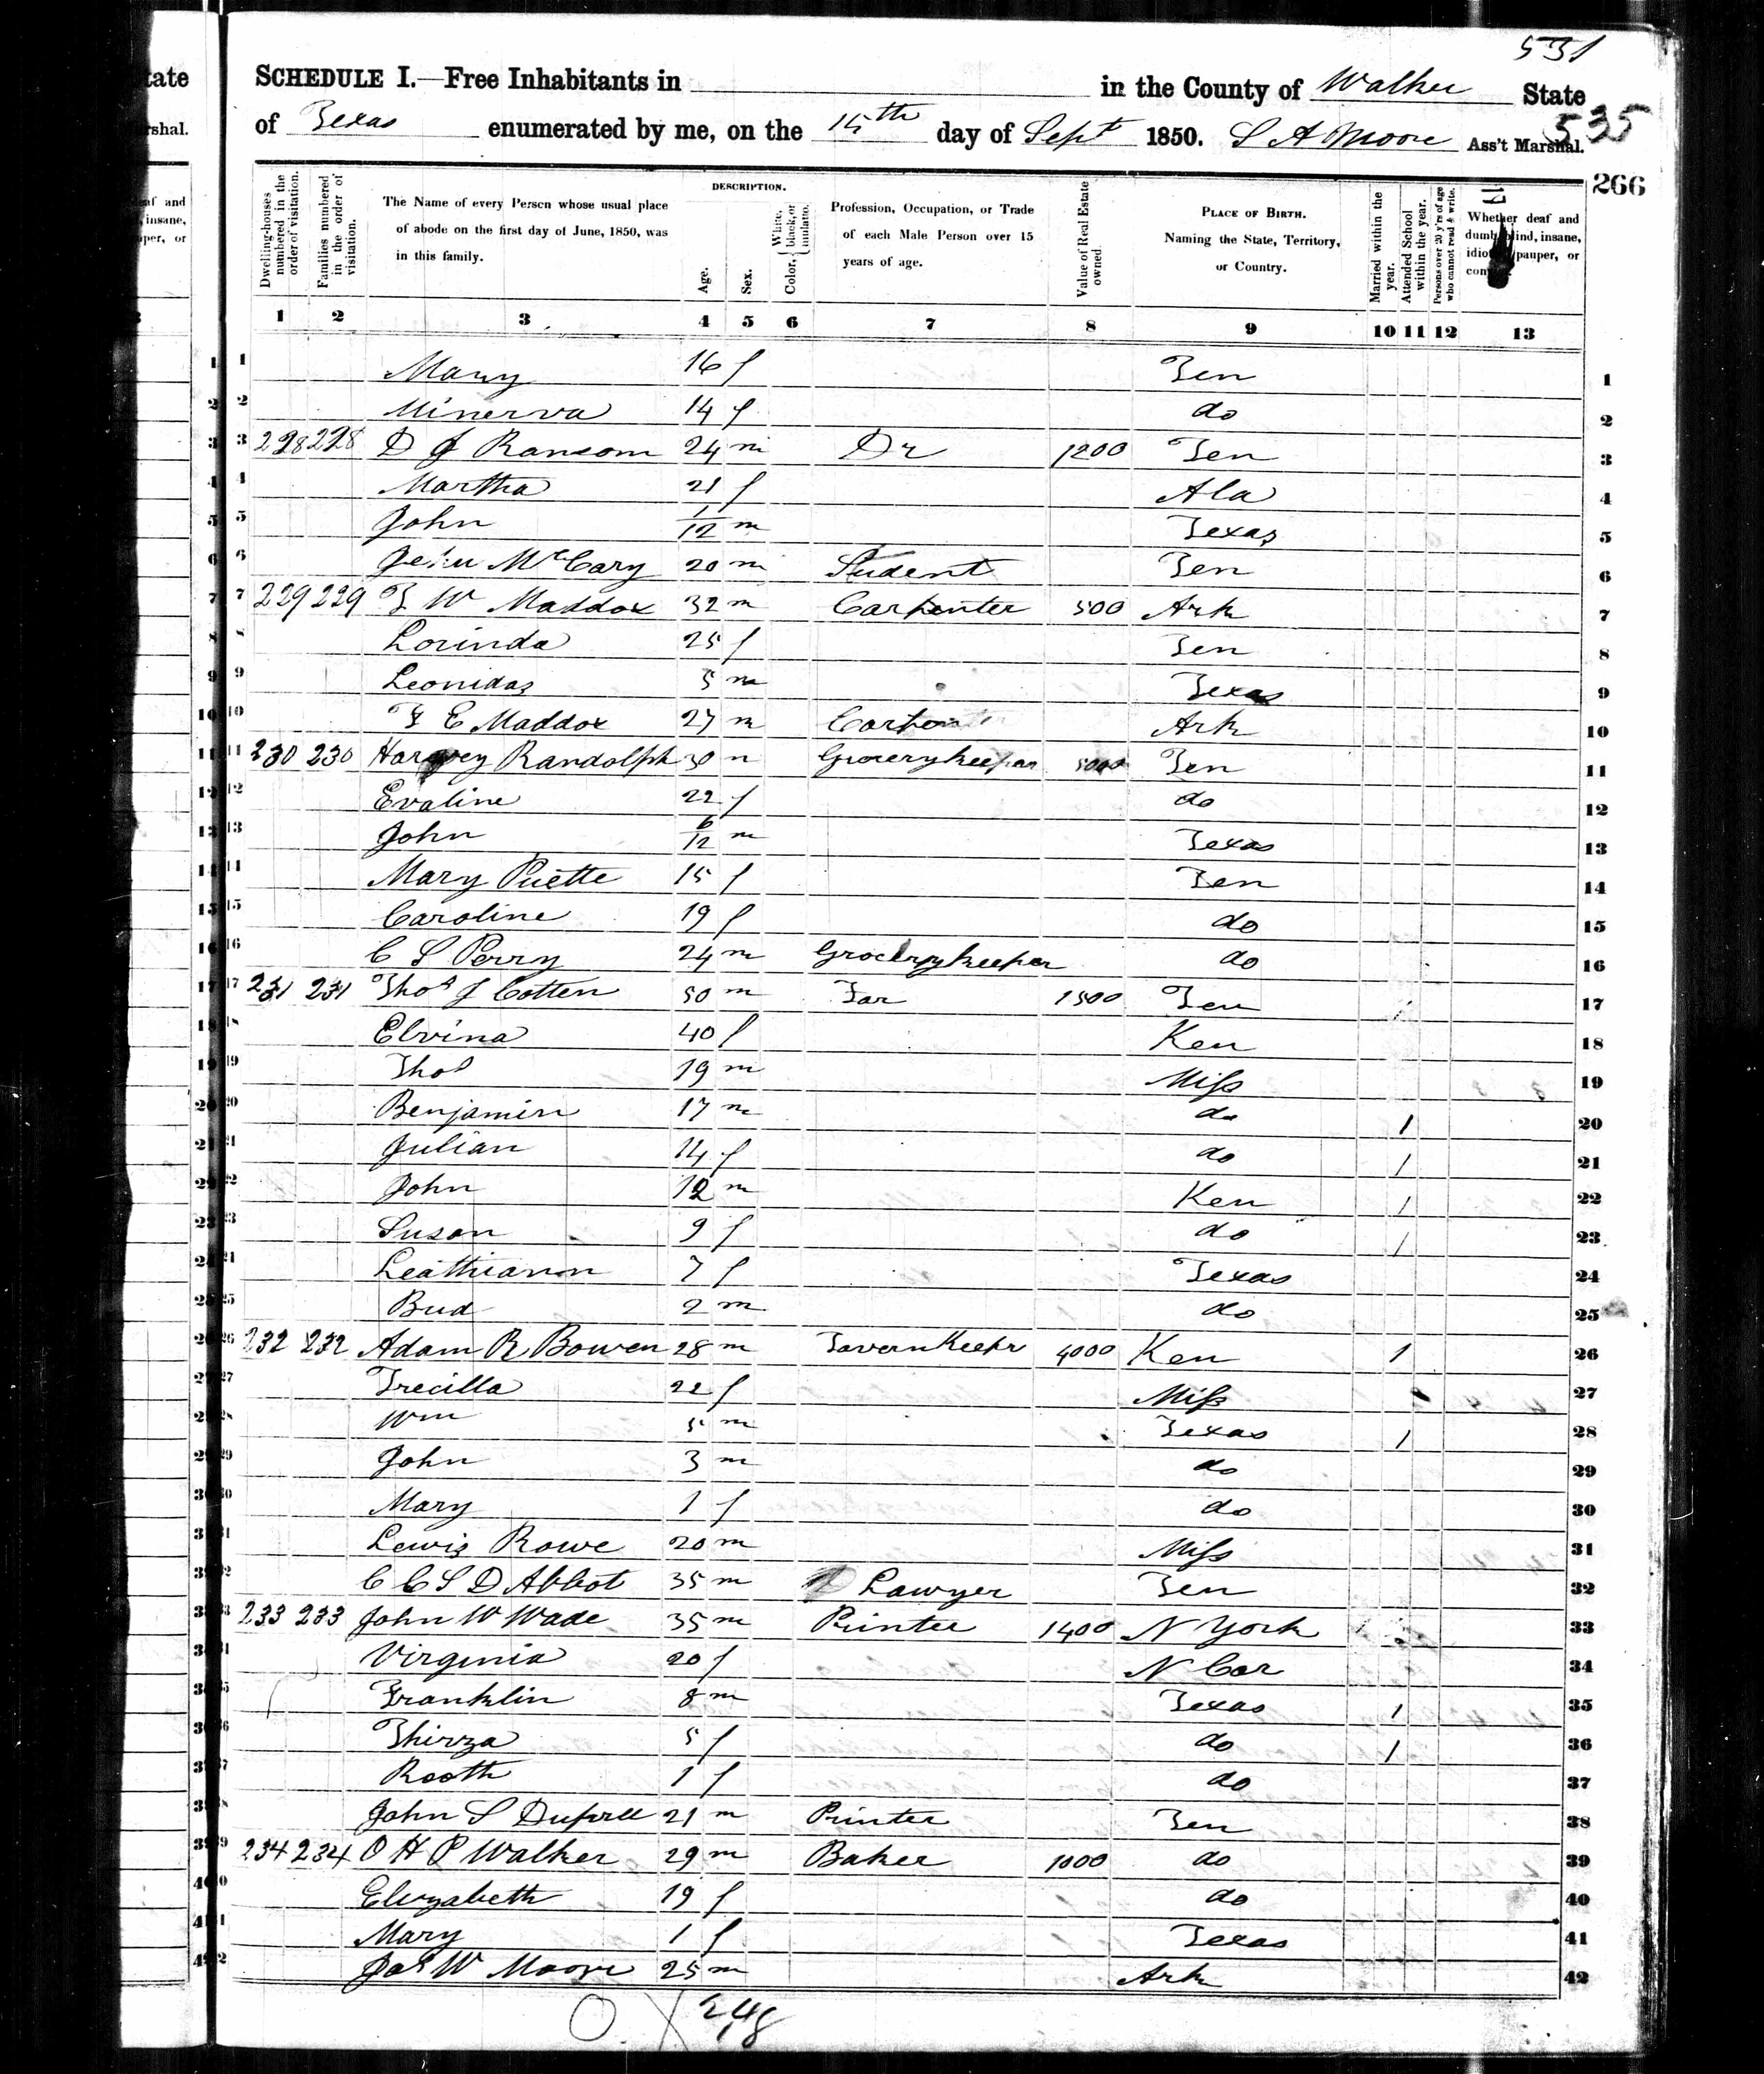 531
SCHEDULE I.—Free Inhabitants in in the County of Walker State
of Texas enumerated by me, on the 15th day of Sept 1850. S A Moore Ass't Marshal.
535
266
Dwelling-houses numbered in the order of visitation.
Families numbered in the order of visitation.
The Name of every Person whose usual place of abode on the first day of June, 1850, was in this family.
DESCRIPTION.
Age.
Sex.
Color, White, black, or mulatto.
Profession, Occupation, or Trade of each Male Person over 15 years of age.
Value of Real Estate owned.
PLACE OF BIRTH. Naming the State, Territory, or Country.
Married within the year.
Attended School within the year.
Persons over 20 y'rs of age who cannot read & write.
Whether deaf and dumb, blind, insane, idiotic, pauper, or convict.
1 2 3 4 5 6 7 8 9 10 11 12 13
1 Mary 16 f Ten 1
2 Minerva 14 f do 2
3 228 228 D J Ransom 24 m Dr 1200 Ten 3
4 Martha 21 f Ala 4
5 John 1/12 m Texas 5
6 Jehu McCary 20 m Student Ten 6
7 229 229 T W Maddox 32 m Carpenter 500 Ark 7
8 Lorinda 25 f Ten 8
9 Leonidas 5 m Texas 9
10 F E Maddox 27 m Carpenter Ark 10
11 230 230 Harvey Randolph 30 m Grocery Keeper 5000 Ten 11
12 Evaline 22 f do 12
13 John 6/12 m Texas 13
14 Mary Puette 15 f Ten 14
15 Caroline 19 f do 15
16 C S Perry 24 m Grocery Keeper do 16
17 231 231 Thos J Cotten 50 m Far 1500 Ten 17
18 Elvina 40 f Ken 18
19 Thos 19 m Miss 19
20 Benjamin 17 m do 1 20
21 Julian 14 f do 1 21
22 John 12 m Ken 1 22
23 Susan 9 f do 1 23
24 Leathiann 7 f Texas 24
25 Bud 2 m do 25
26 232 232 Adam R Bowen 28 m Tavern Keepr 4000 Ken 1 26
27 Trecilla 22 f Miss 27
28 Wm 5 m Texas 1 28
29 John 3 m do 29
30 Mary 1 f do 30
31 Lewis Rowe 20 m Miss 31
32 C C S D Abbot 35 m Lawyer Ten 32
33 233 233 John W Wade 35 m Printer 1400 N York 33
34 Virginia 20 f N Car 34
35 Franklin 8 m Texas 1 35
36 Thirza 5 f do 1 36
37 Rooth 1 f do 37
38 John S 21 m Printer Ten 38
39 234 234 O H P Walker 29 m Baker 1000 do 39
40 Elizabeth 19 f do 40
41 Mary 1 f Texas 41
42 Jas W Moore 25 m Ark 42